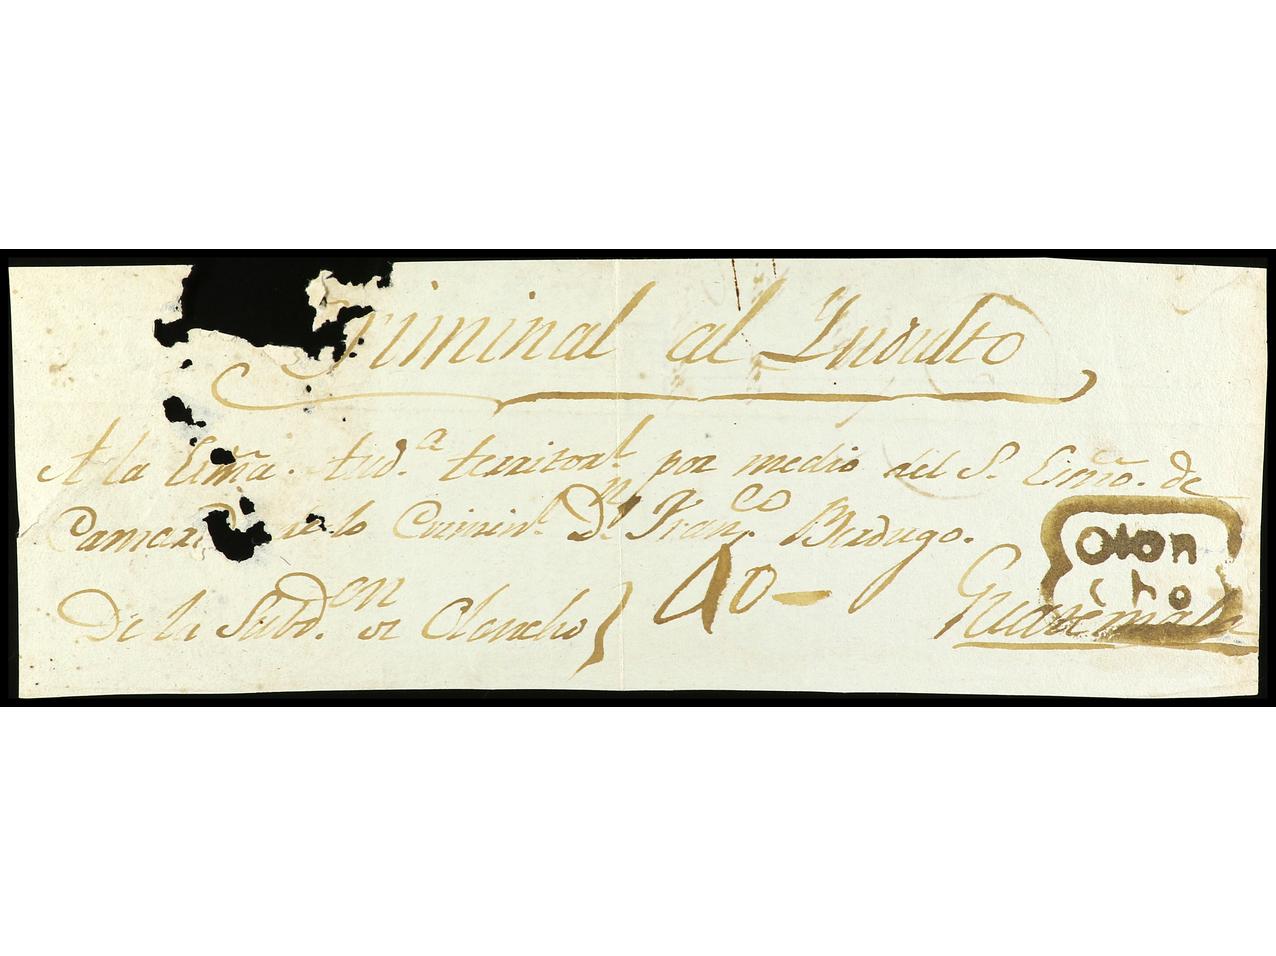 Criminal al Indulto
A la Exma. Aud.a territor.l por medio del S. Essño. de
Camara de lo Crimin.l Dn Fran.co Berdugo.
De la Subd.en de Oloncho } 40 - Guatemala
Olon
cho